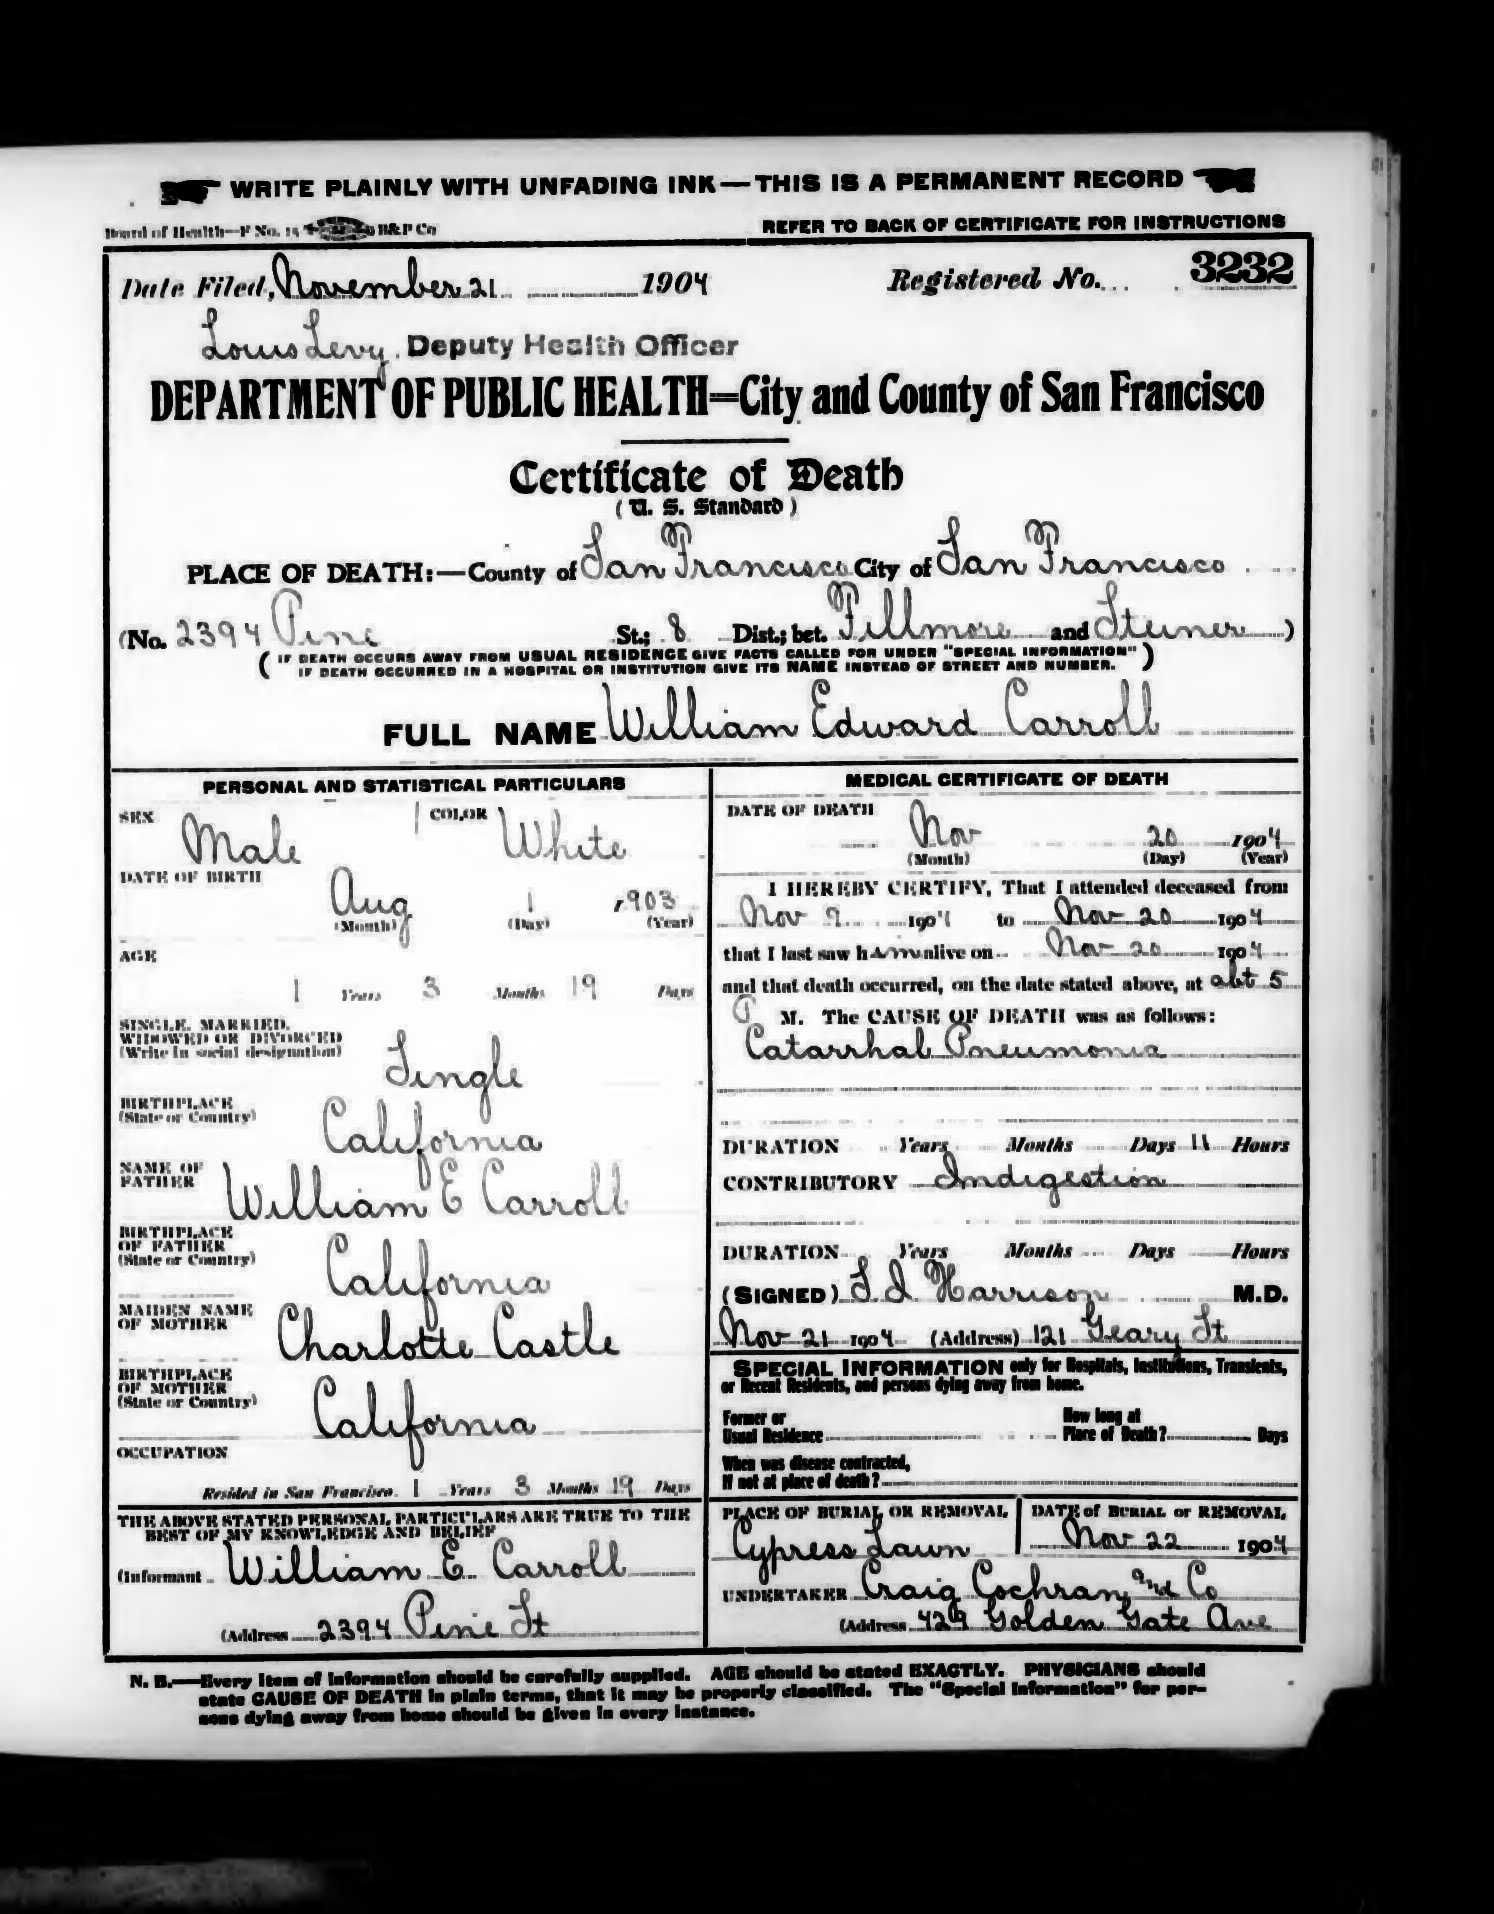 WRITE PLAINLY WITH UNFADING INK—THIS IS A PERMANENT RECORD
Board of Health—F No. 15 H&P Co
REFER TO BACK OF CERTIFICATE FOR INSTRUCTIONS
Date Filed, November 21 1904 Registered No. 3232
Louis Levy, Deputy Health Officer
DEPARTMENT OF PUBLIC HEALTH=City and County of San Francisco
Certificate of Death
(U. S. Standard)
PLACE OF DEATH:—County of San Francisco City of San Francisco
(No. 2394 Pine St.; 8 Dist.; bet. Fillmore and Steiner)
(IF DEATH OCCURS AWAY FROM USUAL RESIDENCE GIVE FACTS CALLED FOR UNDER "SPECIAL INFORMATION"
IF DEATH OCCURRED IN A HOSPITAL OR INSTITUTION GIVE ITS NAME INSTEAD OF STREET AND NUMBER.)
FULL NAME William Edward Carroll
PERSONAL AND STATISTICAL PARTICULARS
SEX Male COLOR White
DATE OF BIRTH
Aug 1 1903
(Month) (Day) (Year)
AGE
1 Years 3 Months 19 Days
SINGLE, MARRIED,
WIDOWED OR DIVORCED
(Write in social designation)
Single
BIRTHPLACE
(State or Country)
California
NAME OF
FATHER
William E Carroll
BIRTHPLACE
OF FATHER
(State or Country)
California
MAIDEN NAME
OF MOTHER
Charlotte Castle
BIRTHPLACE
OF MOTHER
(State or Country)
California
OCCUPATION
Resided in San Francisco 1 Years 3 Months 19 Days
THE ABOVE STATED PERSONAL PARTICULARS ARE TRUE TO THE
BEST OF MY KNOWLEDGE AND BELIEF
(Informant William E. Carroll
(Address 2394 Pine St
MEDICAL CERTIFICATE OF DEATH
DATE OF DEATH
Nov 20 1904
(Month) (Day) (Year)
I HEREBY CERTIFY, That I attended deceased from
Nov 9 1904 to Nov 20 1904
that I last saw him alive on Nov 20 1904
and that death occurred, on the date stated above, at abt 5
P M. The CAUSE OF DEATH was as follows:
Catarrhal Pneumonia
DURATION Years Months Days 11 Hours
CONTRIBUTORY Indigestion
DURATION Years Months Days Hours
(SIGNED) L. I. Harrison M.D.
Nov 21 1904 (Address) 121 Geary St
SPECIAL INFORMATION only for Hospitals, Institutions, Transients,
or Recent Residents, and persons dying away from home.
Former or
Usual Residence
How long at
Place of Death? Days
When was disease contracted,
If not at place of death?
PLACE OF BURIAL OR REMOVAL
Cypress Lawn
DATE of BURIAL or REMOVAL
Nov 22 1904
UNDERTAKER Craig Cochran and Co
(Address 429 Golden Gate Ave
N. B.—Every item of information should be carefully supplied. AGE should be stated EXACTLY. PHYSICIANS should
state CAUSE OF DEATH in plain terms, that it may be properly classified. The "Special Information" for per-
sons dying away from home should be given in every instance.